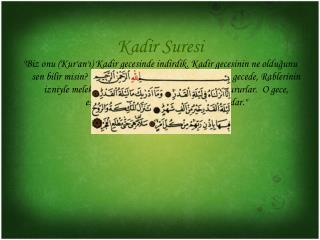 Kadir Suresi
"Biz onu (Kur'an'ı) Kadir gecesinde indirdik. Kadir gecesinin ne olduğunu
sen bilir misin? gecede, Rablerinin
izniyle O gece,
بِسْمِ اللهِ الرَّحْمٰنِ الرَّحِيمِ
اِنَّا اَنْزَلْنَاهُ فِي لَيْلَةِ الْقَدْرِ وَمَا اَدْرٰيكَ مَا لَيْلَةُ الْقَدْرِ
لَيْلَةُ الْقَدْرِ خَيْرٌ مِنْ اَلْفِ شَهْرٍ تَنَزَّلُ الْمَلٰئِكَةُ وَالرُّوحُ
فِيهَا بِاِذْنِ رَبِّهِمْ مِنْ كُلِّ اَمْرٍ سَلَامٌ هِيَ حَتّٰى مَطْلَعِ الْفَجْرِ